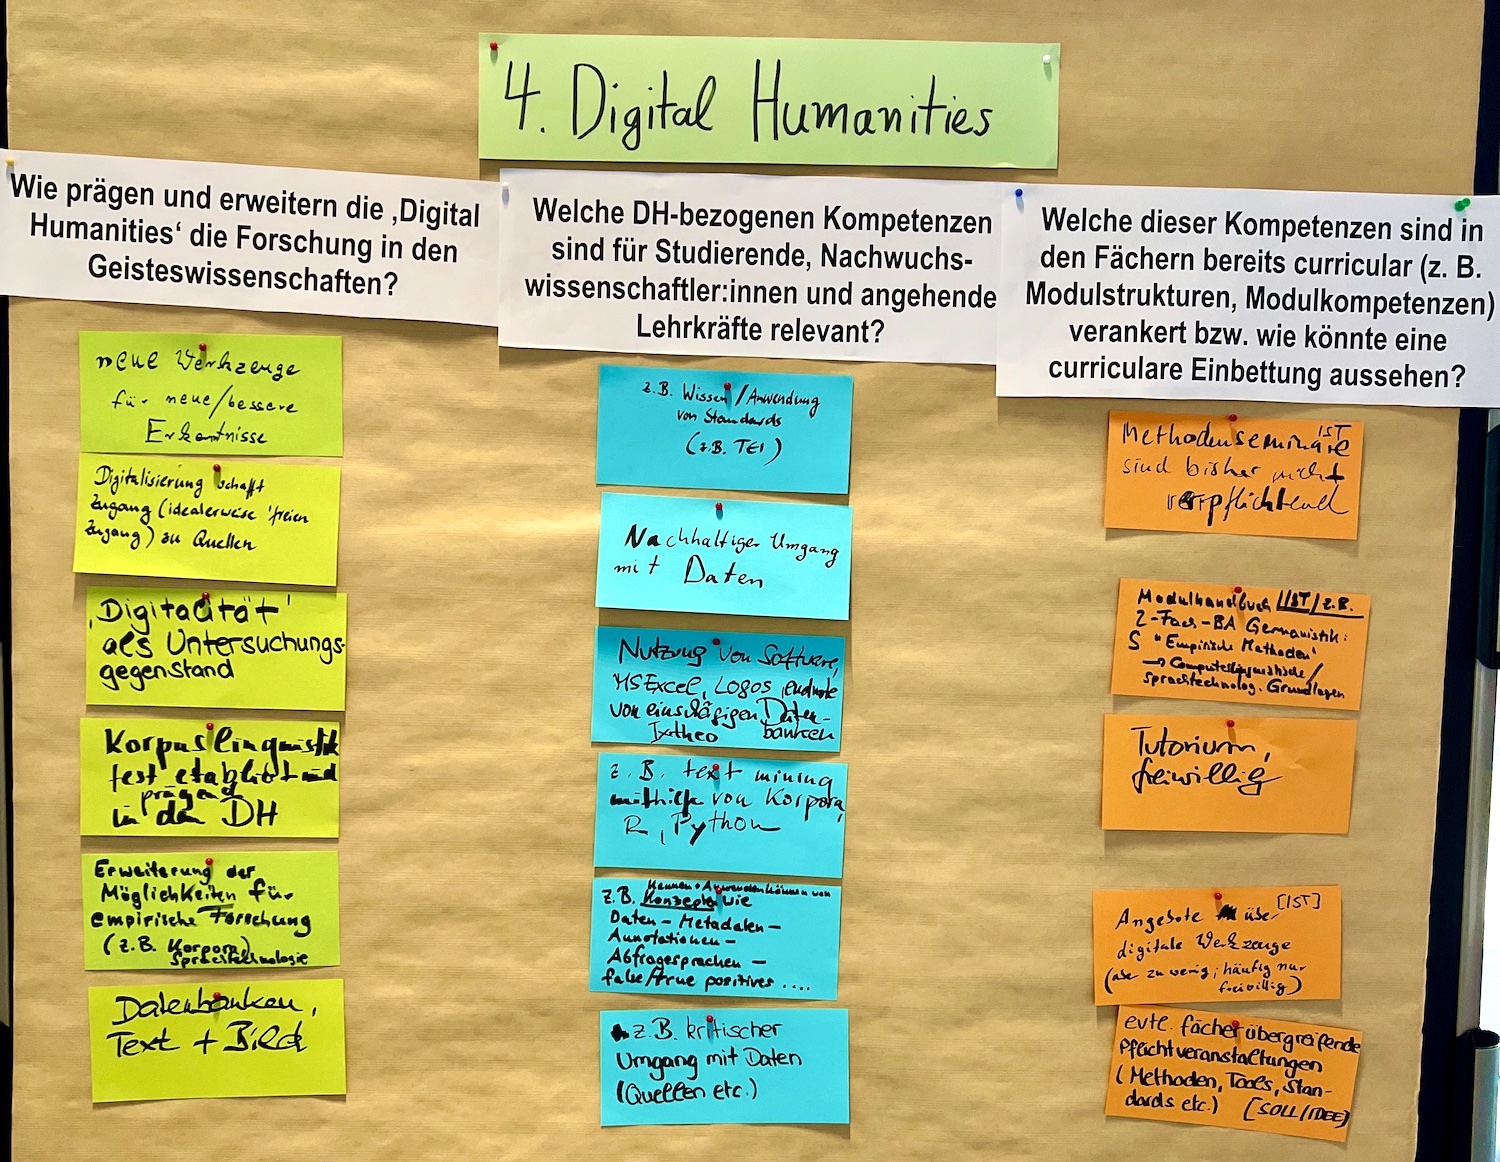 4. Digital Humanities
Wie prägen und erweitern die ‚Digital
Humanities‘ die Forschung in den
Geisteswissenschaften?
neue Werkzeuge
für neue/bessere
Erkenntnisse
Digitalisierung schafft
Zugang (idealerweise 'freien
Zugang) zu Quellen
'Digitalität'
als Untersuchungs-
gegenstand
Korpuslinguistik
fest etabliert und
prägend
in den DH
Erweiterung der
Möglichkeiten für
empirische Forschung
(z.B. Korpora)
Sprachtechnologie
Datenbanken,
Text + Bild
Welche DH-bezogenen Kompetenzen
sind für Studierende, Nachwuchs-
wissenschaftler:innen und angehende
Lehrkräfte relevant?
z.B. Wissen/Anwendung
von Standards
(z.B. TEI)
Nachhaltiger Umgang
mit Daten
Nutzung von Software,
MS Excel, Logos, endnote
von einschlägigen Daten-
Ixtheo banken
z.B. text mining
mithilfe von Korpora,
R, Python
Kennen + Anwenden können von
z.B. Konzepte wie
Daten – Metadaten –
Annotationen –
Abfragesprachen –
false/true positives ....
z.B. kritischer
Umgang mit Daten
(Quellen etc.)
Welche dieser Kompetenzen sind in
den Fächern bereits curricular (z. B.
Modulstrukturen, Modulkompetenzen)
verankert bzw. wie könnte eine
curriculare Einbettung aussehen?
IST
Methodenseminare
sind bisher nicht
verpflichtend
Modulhandbuch IST/z.B.
2-Fach-BA Germanistik:
S "Empirische Methoden"
→ Computerlinguistische/
sprachtechnolog. Grundlagen
Tutorium,
freiwillig
Angebote über [IST]
digitale Werkzeuge
(aber zu wenig; häufig nur
freiwillig)
evtl. fächerübergreifende
Pflichtveranstaltungen
(Methoden, Tools, Stan-
dards etc.) [SOLL/IDEE]